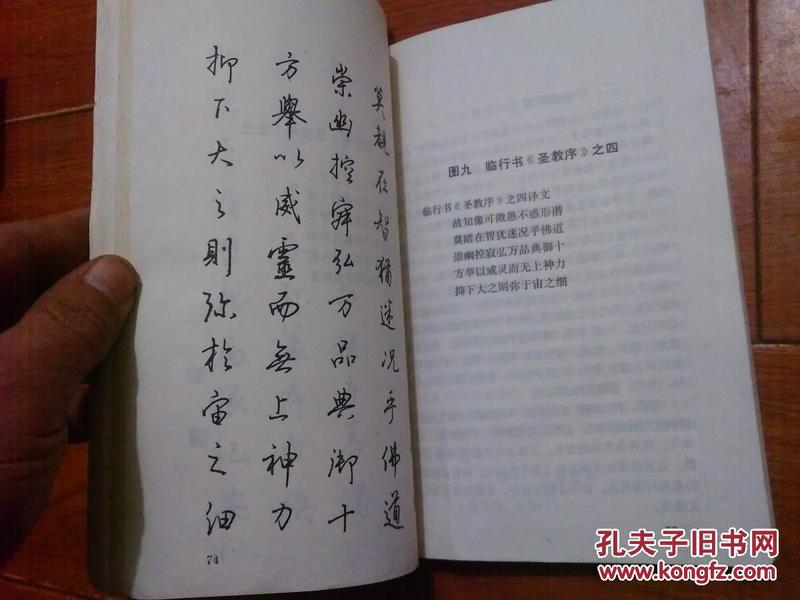 莫覩在智猶迷况乎佛道
崇幽控寂弘万品典御十
方舉以威靈而無上神力
抑下大之則弥於宙之细
74
图九 临行书《圣教序》之四
临行书《圣教序》之四译文
故知像可微愚不惑形潜
莫睹在智犹迷况乎佛道
崇幽控寂弘万品典御十
方举以威灵而无上神力
抑下大之则弥于宙之细
孔夫子旧书网
www.kongfz.com